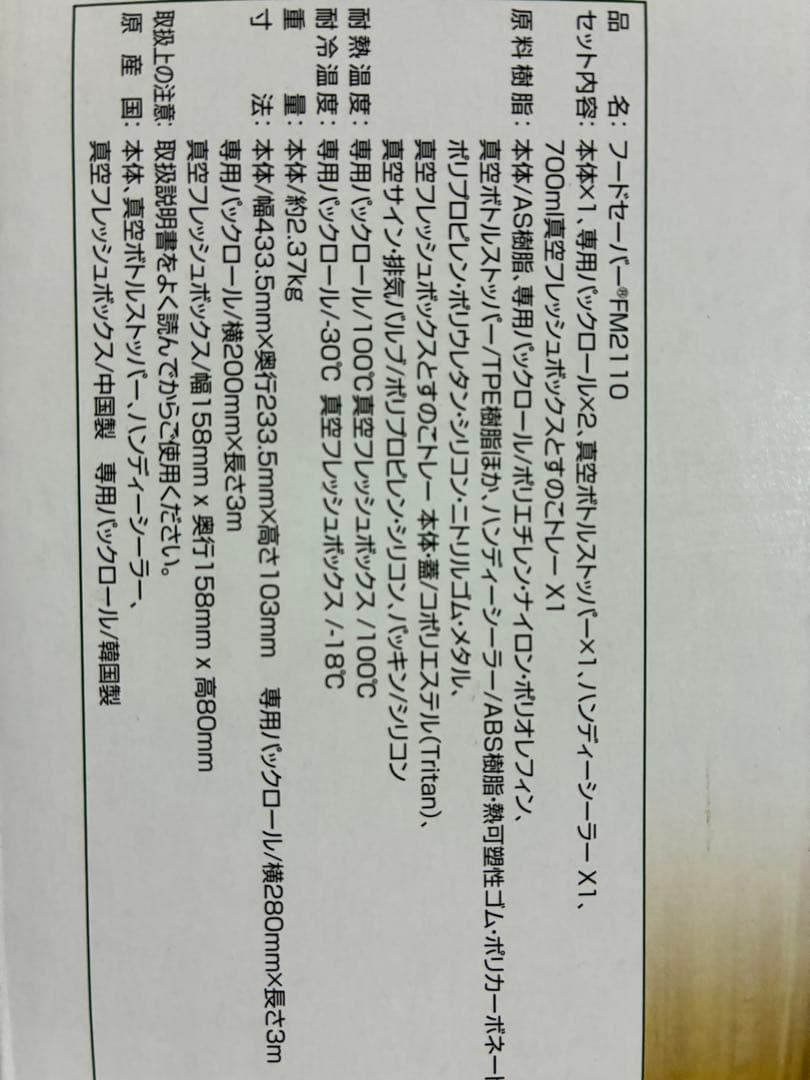 品名：フードセーバー®FM2110
セット内容：本体×1、専用パックロール×2、真空ボトルストッパー×1、ハンディーシーラー X1、
700ml真空フレッシュボックスとすのこトレー X1
原料樹脂：本体/AS樹脂、専用パックロール/ポリエチレン・ナイロン・ポリオレフィン、
真空ボトルストッパー/TPE樹脂ほか、ハンディーシーラー/ABS樹脂・熱可塑性ゴム・ポリカーボネート
ポリプロピレン・ポリウレタン・シリコン・ニトリルゴム・メタル、
真空フレッシュボックスとすのこトレー 本体・蓋/コポリエステル(Tritan)、
真空サイン・排気バルブ/ポリプロピレン・シリコン、パッキン/シリコン
耐熱温度：専用パックロール/100℃真空フレッシュボックス /100℃
耐冷温度：専用パックロール/-30℃ 真空フレッシュボックス /-18℃
重量：本体/約2.37kg
寸法：本体/幅433.5mm×奥行233.5mm×高さ103mm 専用パックロール/横280mm×長さ3m
専用パックロール/横200mm×長さ3m
真空フレッシュボックス/幅158mm x 奥行158mm x 高80mm
取扱上の注意：取扱説明書をよく読んでからご使用ください。
原産国：本体、真空ボトルストッパー、ハンディーシーラー、
真空フレッシュボックス/中国製 専用パックロール/韓国製